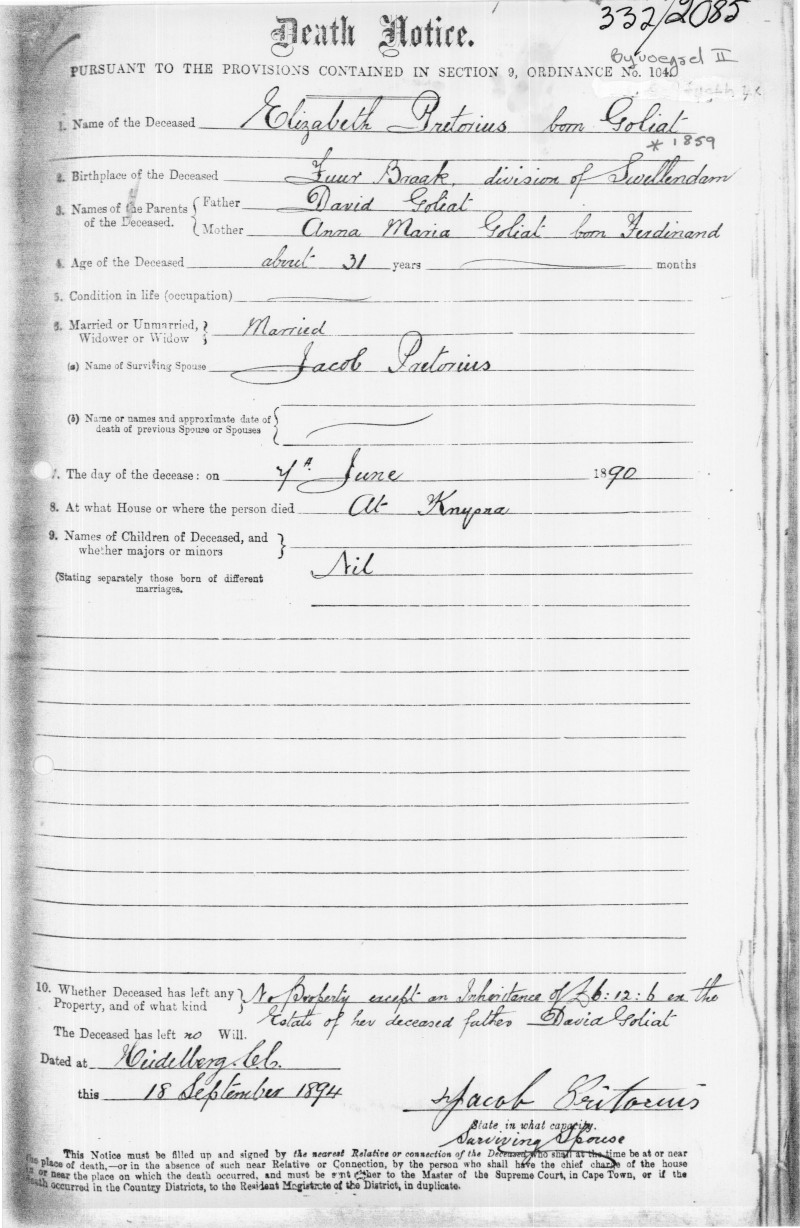 332/2085
Death Notice.
Byvoegsel II
PURSUANT TO THE PROVISIONS CONTAINED IN SECTION 9, ORDINANCE No. 104.
1. Name of the Deceased Elizabeth Pretorius born Goliat
* 1859
2. Birthplace of the Deceased Zuur Braak, division of Swellendam
3. Names of the Parents of the Deceased. { Father David Goliat
Mother Anna Maria Goliat born Ferdinand
4. Age of the Deceased about 31 years months
5. Condition in life (occupation)
6. Married or Unmarried, Widower or Widow } Married
(a) Name of Surviving Spouse Jacob Pretorius
(b) Name or names and approximate date of
death of previous Spouse or Spouses {
7. The day of the decease: on June 1890
8. At what House or where the person died At Knysna
9. Names of Children of Deceased, and
whether majors or minors }
Nil
(Stating separately those born of different
marriages.
10. Whether Deceased has left any
Property, and of what kind } No Property except an Inheritance of £6:12:6 en the
Estate of her deceased father David Goliat
The Deceased has left no Will.
Dated at Heidelberg.
this 18 September 1894
Jacob Pritorius
State in what capacity.
Surviving Spouse
This Notice must be filled up and signed by the nearest Relative or connection of the Deceased, who shall at the time be at or near
the place of death,—or in the absence of such near Relative or Connection, by the person who shall have the chief charge of the house
in or near the place on which the death occurred, and must be sent either to the Master of the Supreme Court, in Cape Town, or if the
death occurred in the Country Districts, to the Resident Magistrate of the District, in duplicate.